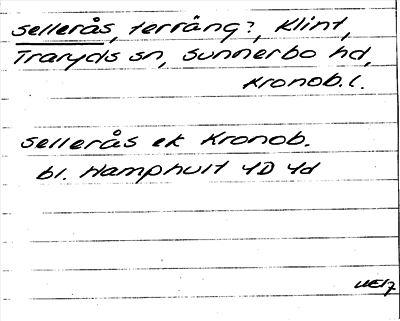 Sellerås, terräng?, Klint,
Traryds sn, Sunnerbo hd,
Kronob. l.
Sellerås ek Kronob.
bl. Hamphult 4D 4d